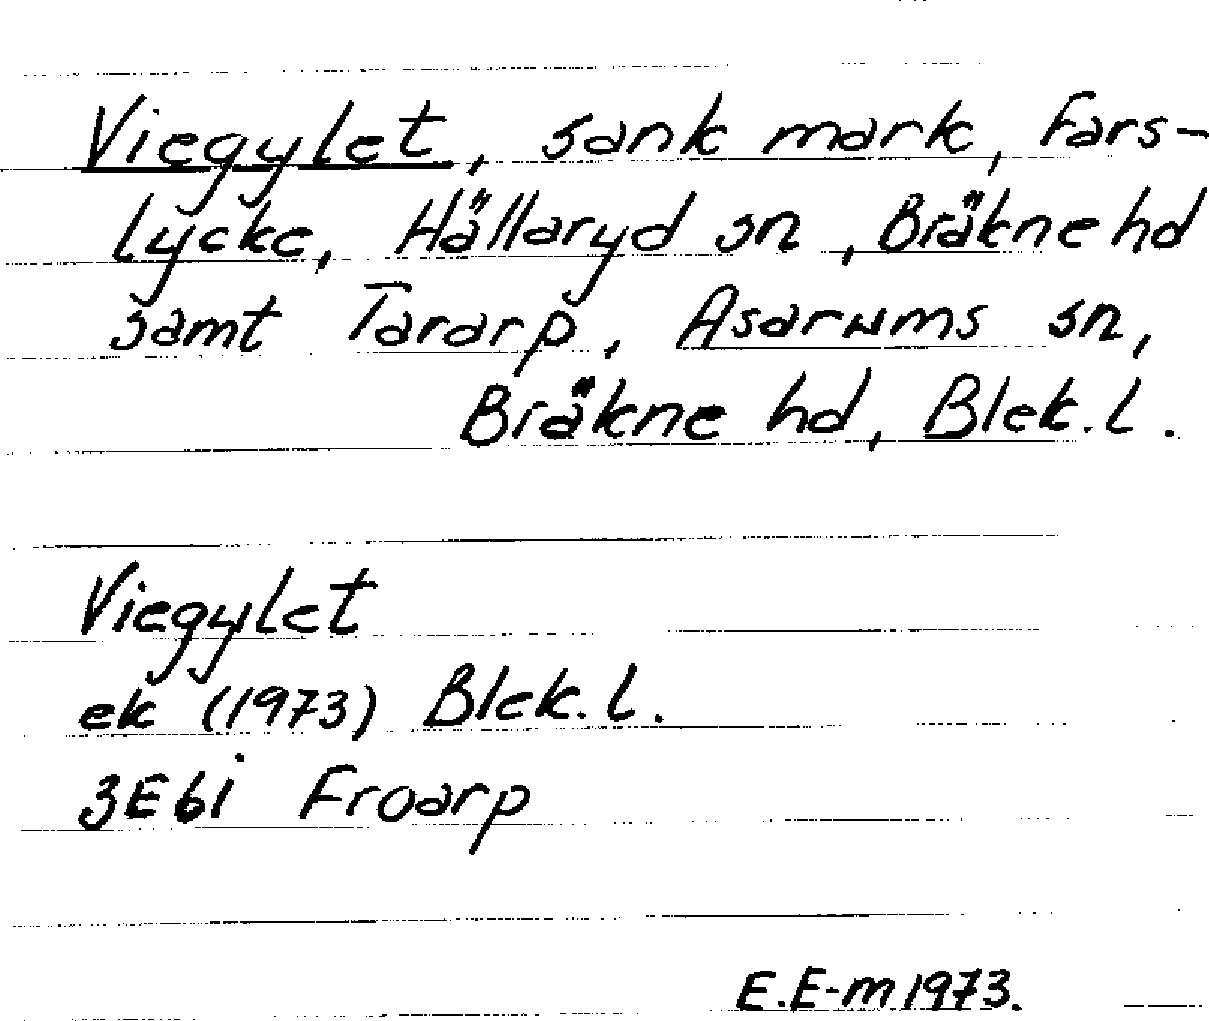 Viegylet, sank mark, Fars-
lycke, Hällaryd sn, Bräkne hd
samt Tararp, Asarums sn,
Bräkne hd, Blek.l.
Viegylet
ek (1973) Blek.l.
3E6i Froarp
E.E-m 1973.